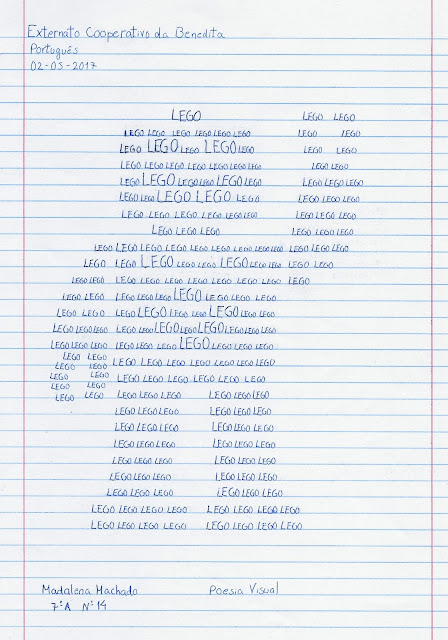 Externato Cooperativo da Benedita
Português
02-05-2017
LEGO LEGO LEGO
LEGO LEGO LEGO LEGO LEGO LEGO LEGO LEGO
LEGO LEGO LEGO LEGO LEGO LEGO LEGO
LEGO LEGO LEGO LEGO LEGO LEGO LEGO LEGO LEGO
LEGO LEGO LEGO LEGO LEGO LEGO LEGO LEGO LEGO
LEGO LEGO LEGO LEGO LEGO LEGO LEGO LEGO
LEGO LEGO LEGO LEGO LEGO LEGO LEGO LEGO LEGO
LEGO LEGO LEGO LEGO LEGO LEGO
LEGO LEGO LEGO LEGO LEGO LEGO LEGO LEGO LEGO LEGO LEGO
LEGO LEGO LEGO LEGO LEGO LEGO LEGO LEGO LEGO LEGO
LEGO LEGO LEGO LEGO LEGO LEGO LEGO LEGO LEGO
LEGO LEGO LEGO LEGO LEGO LEGO LEGO LEGO LEGO
LEGO LEGO LEGO LEGO LEGO LEGO LEGO LEGO
LEGO LEGO LEGO LEGO LEGO LEGO LEGO LEGO LEGO LEGO
LEGO LEGO LEGO LEGO LEGO LEGO LEGO LEGO LEGO LEGO
LEGO LEGO
LEGO LEGO LEGO LEGO LEGO LEGO LEGO LEGO
LEGO LEGO LEGO LEGO LEGO LEGO LEGO LEGO
LEGO LEGO
LEGO LEGO LEGO LEGO LEGO LEGO LEGO LEGO
LEGO LEGO LEGO LEGO LEGO LEGO
LEGO LEGO LEGO LEGO LEGO LEGO
LEGO LEGO LEGO LEGO LEGO LEGO
LEGO LEGO LEGO LEGO LEGO LEGO
LEGO LEGO LEGO LEGO LEGO LEGO
LEGO LEGO LEGO LEGO LEGO LEGO
LEGO LEGO LEGO LEGO LEGO LEGO LEGO LEGO
LEGO LEGO LEGO LEGO LEGO LEGO LEGO LEGO
Madalena Machado Poesia Visual
7ºA Nº14